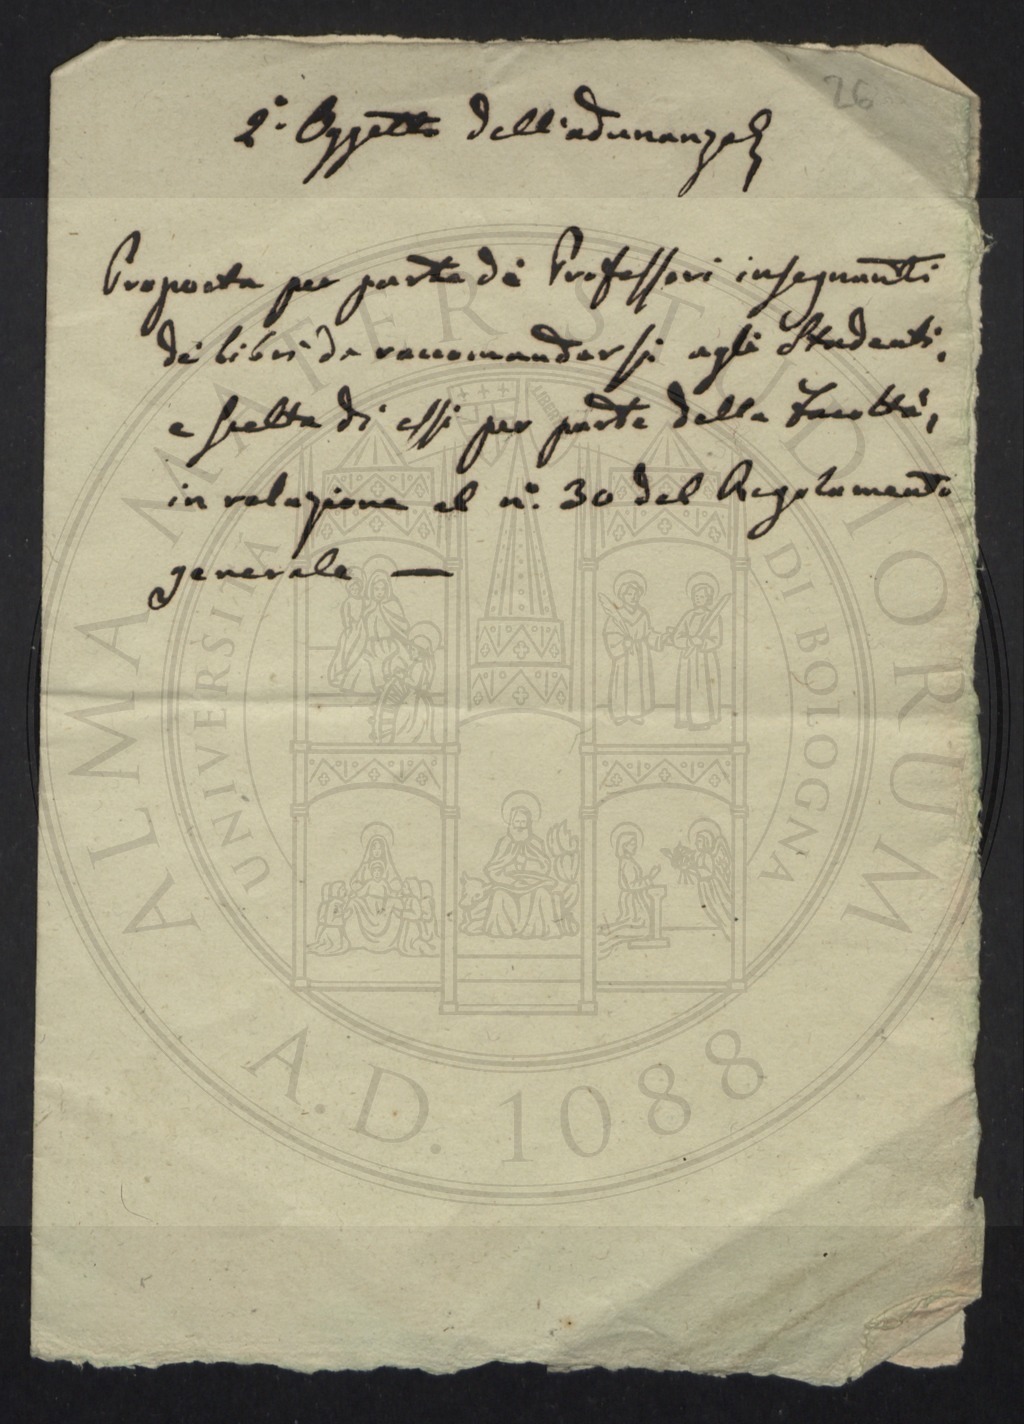 26
2.° Oggetto dell'adunanza
Proposta per parte de' Professori insegnanti
de' libri da raccomandarsi agli Studenti,
e scelta di essi per parte della Facoltà,
in relazione al n.° 30 del Regolamento
generale —
ALMA MATER STUDIORUM
UNIVERSITÀ DI BOLOGNA
A.D. 1088